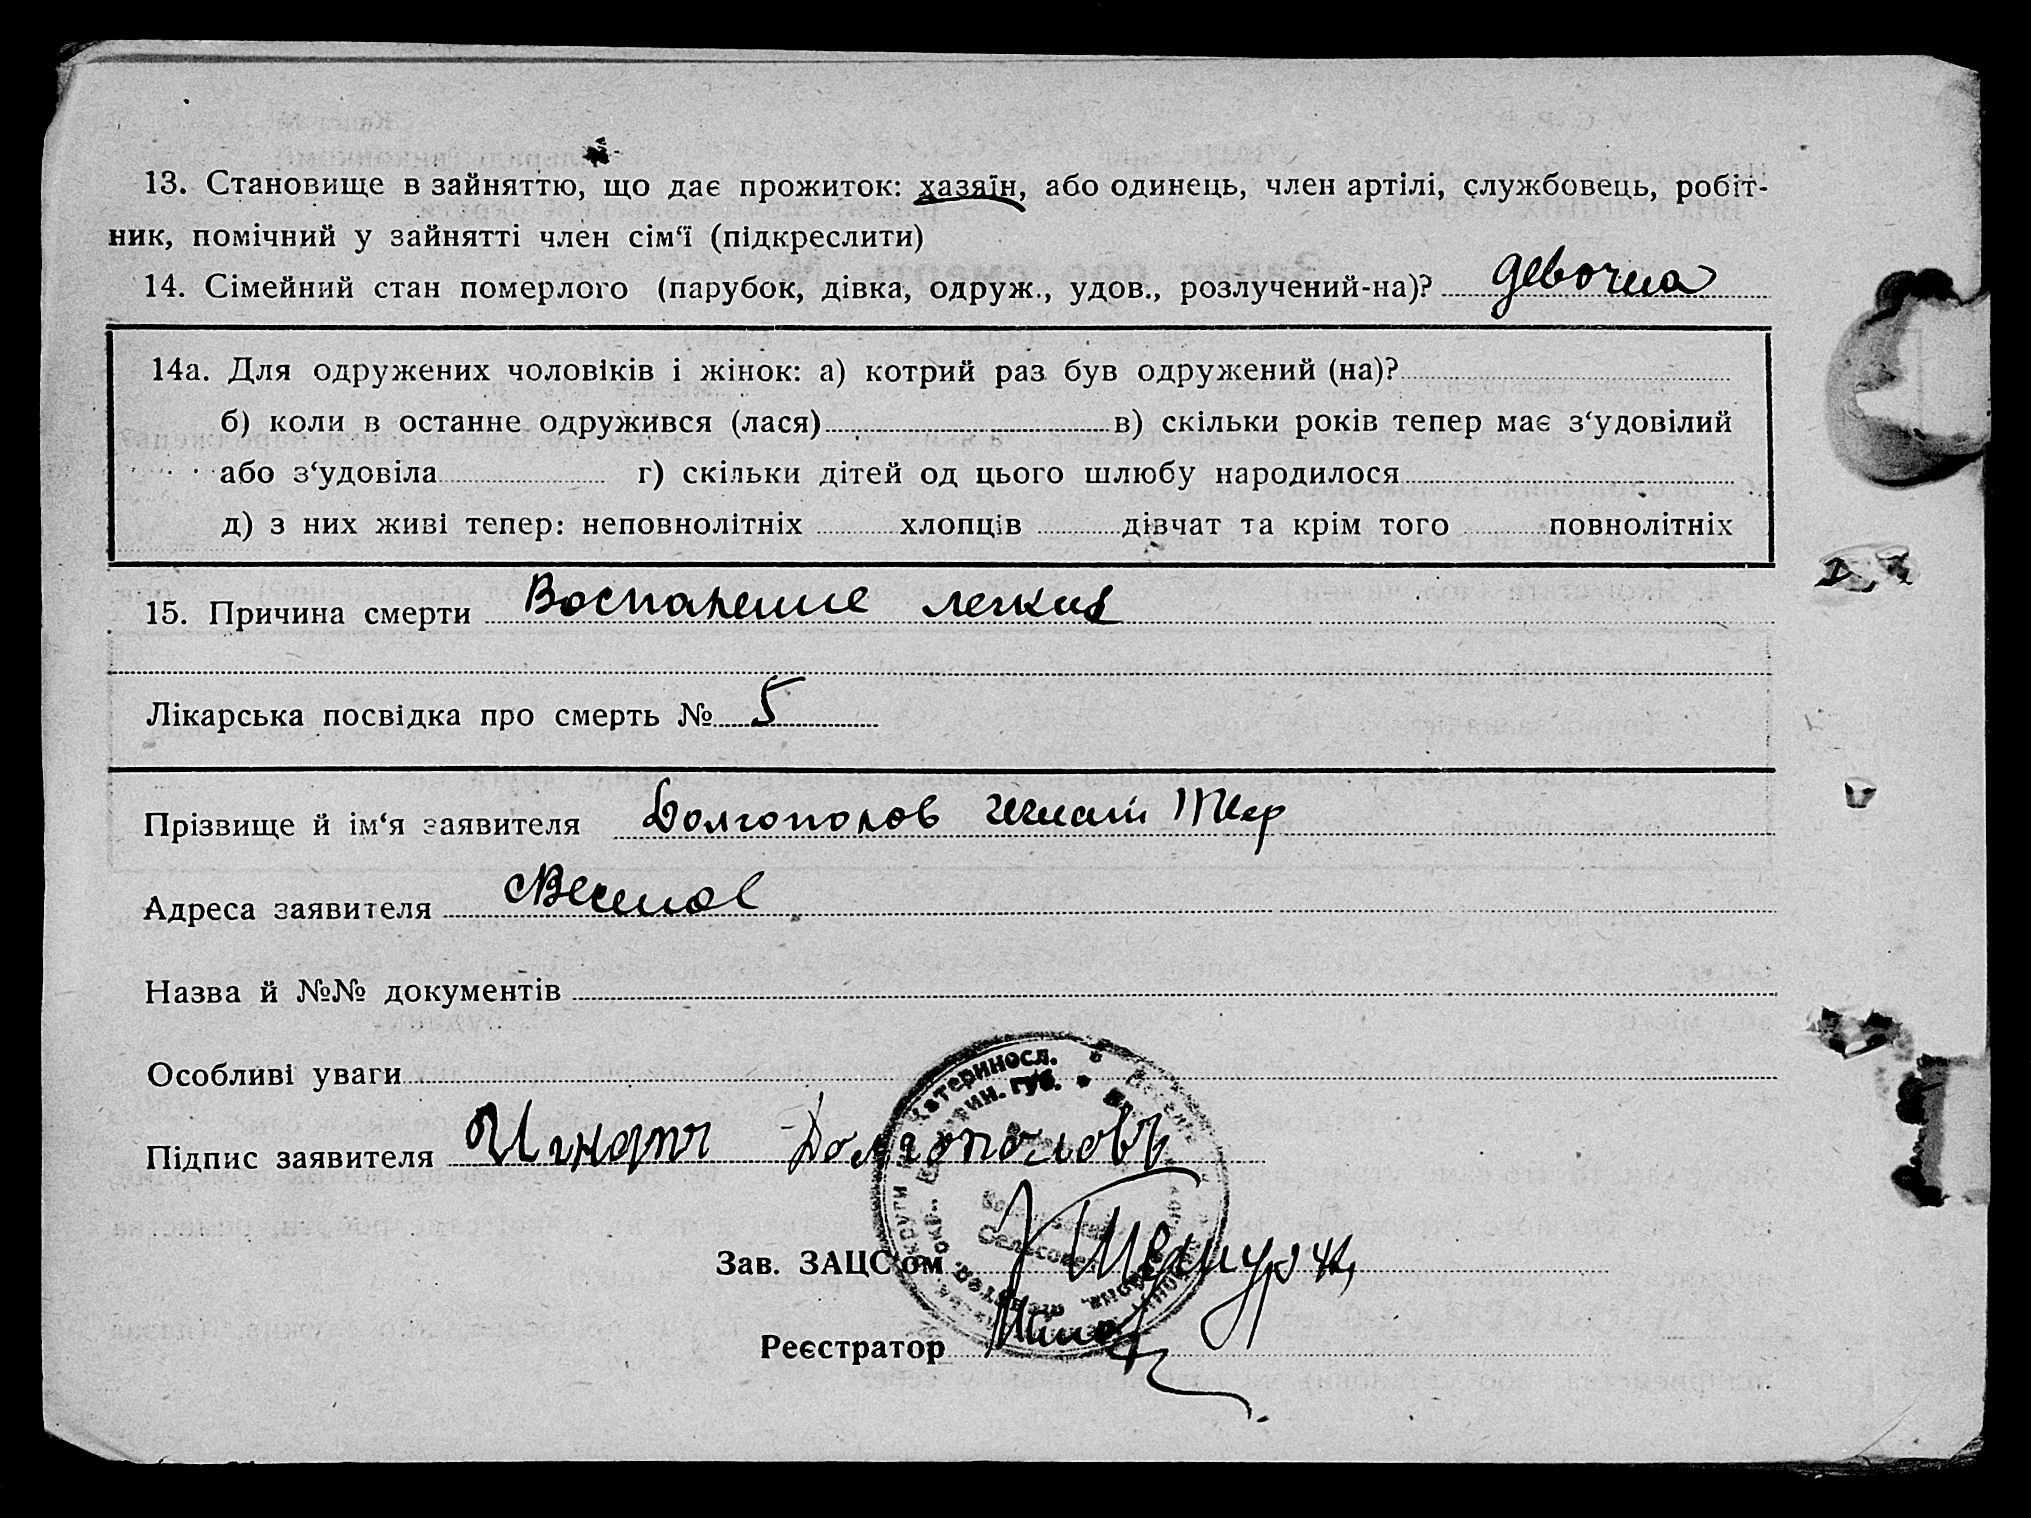 13. Становище в зайняттю, що дає прожиток: хазяїн, або одинець, член артілі, службовець, робіт-
ник, помічний у зайнятті член сім‘ї (підкреслити)
14. Сімейний стан померлого (парубок, дівка, одруж., удов., розлучений-на)? девочка
14а. Для одружених чоловіків і жінок: а) котрий раз був одружений (на)?
б) коли в останне одружився (лася) в) скільки років тепер має з‘удовілий
або з‘удовіла г) скільки дітей од цього шлюбу народилося
д) з них живі тепер: неповнолітніх хлопців дівчат та крім того повнолітніх
15. Причина смерти Воспаление легких
Лікарська посвідка про смерть № 5
Прізвище й ім‘я заявителя Долгополов Игнат
Адреса заявителя
Назва й №№ документів
Особливі уваги
Підпис заявителя Игнатъ Долгополовъ
Зав. ЗАЦС‘ом
Реєстратор
Катериносл.
губ.
округи